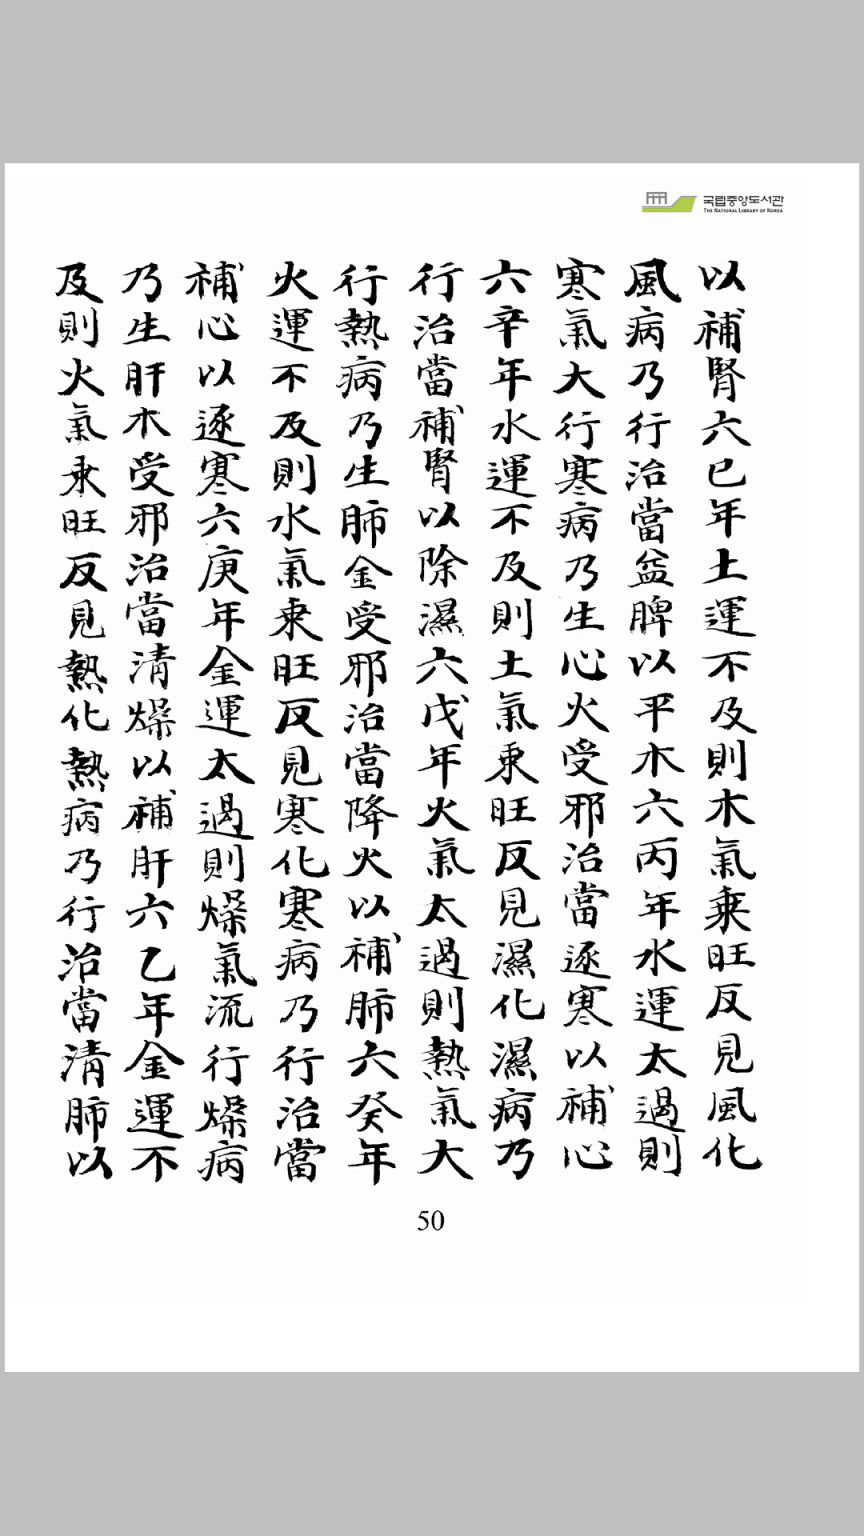 국립중앙도서관
THE NATIONAL LIBRARY OF KOREA
以補腎六己年土運不及則木氣乘旺反見風化
風病乃行治當益脾以平木六丙年水運太過則
寒氣大行寒病乃生心火受邪治當逐寒以補心
六辛年水運不及則土氣乘旺反見濕化濕病乃
行治當補腎以除濕六戊年火氣太過則熱氣大
行熱病乃生肺金受邪治當降火以補肺六癸年
火運不及則水氣乘旺反見寒化寒病乃行治當
補心以逐寒六庚年金運太過則燥氣流行燥病
乃生肝木受邪治當清燥以補肝六乙年金運不
及則火氣乘旺反見熱化熱病乃行治當清肺以
50